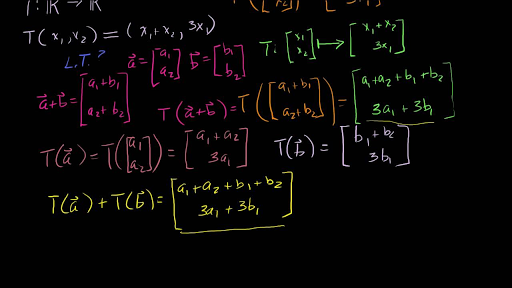 T: ℝ → ℝ
T(x₁, x₂) = (x₁+x₂, 3x₁)
T: [x₁; x₂] ↦ [x₁+x₂; 3x₁]
L.T.?
a⃗ = [a₁; a₂] b⃗ = [b₁; b₂]
a⃗+b⃗ = [a₁+b₁; a₂+b₂]
T(a⃗+b⃗) = T([a₁+b₁; a₂+b₂]) = [a₁+a₂+b₁+b₂; 3a₁+3b₁]
T(a⃗) = T([a₁; a₂]) = [a₁+a₂; 3a₁] T(b⃗) = [b₁+b₂; 3b₁]
T(a⃗) + T(b⃗) = [a₁+a₂+b₁+b₂; 3a₁+3b₁]